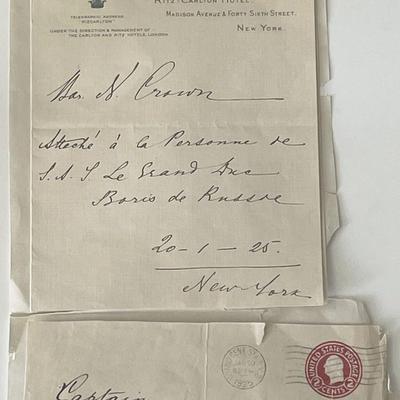 RITZ-CARLTON HOTEL.
MADISON AVENUE & FORTY SIXTH STREET,
NEW YORK.
TELEGRAPHIC ADDRESS
"RIZCARLTON"
UNDER THE DIRECTION & MANAGEMENT OF
THE CARLTON AND RITZ HOTELS, LONDON
N. Crown
Attaché à la Personne de
S. A. I. Le Grand Duc
Boris de Russie
20-1-25.
New-York
UNITED STATES POSTAGE
2 CENTS 2
Captain